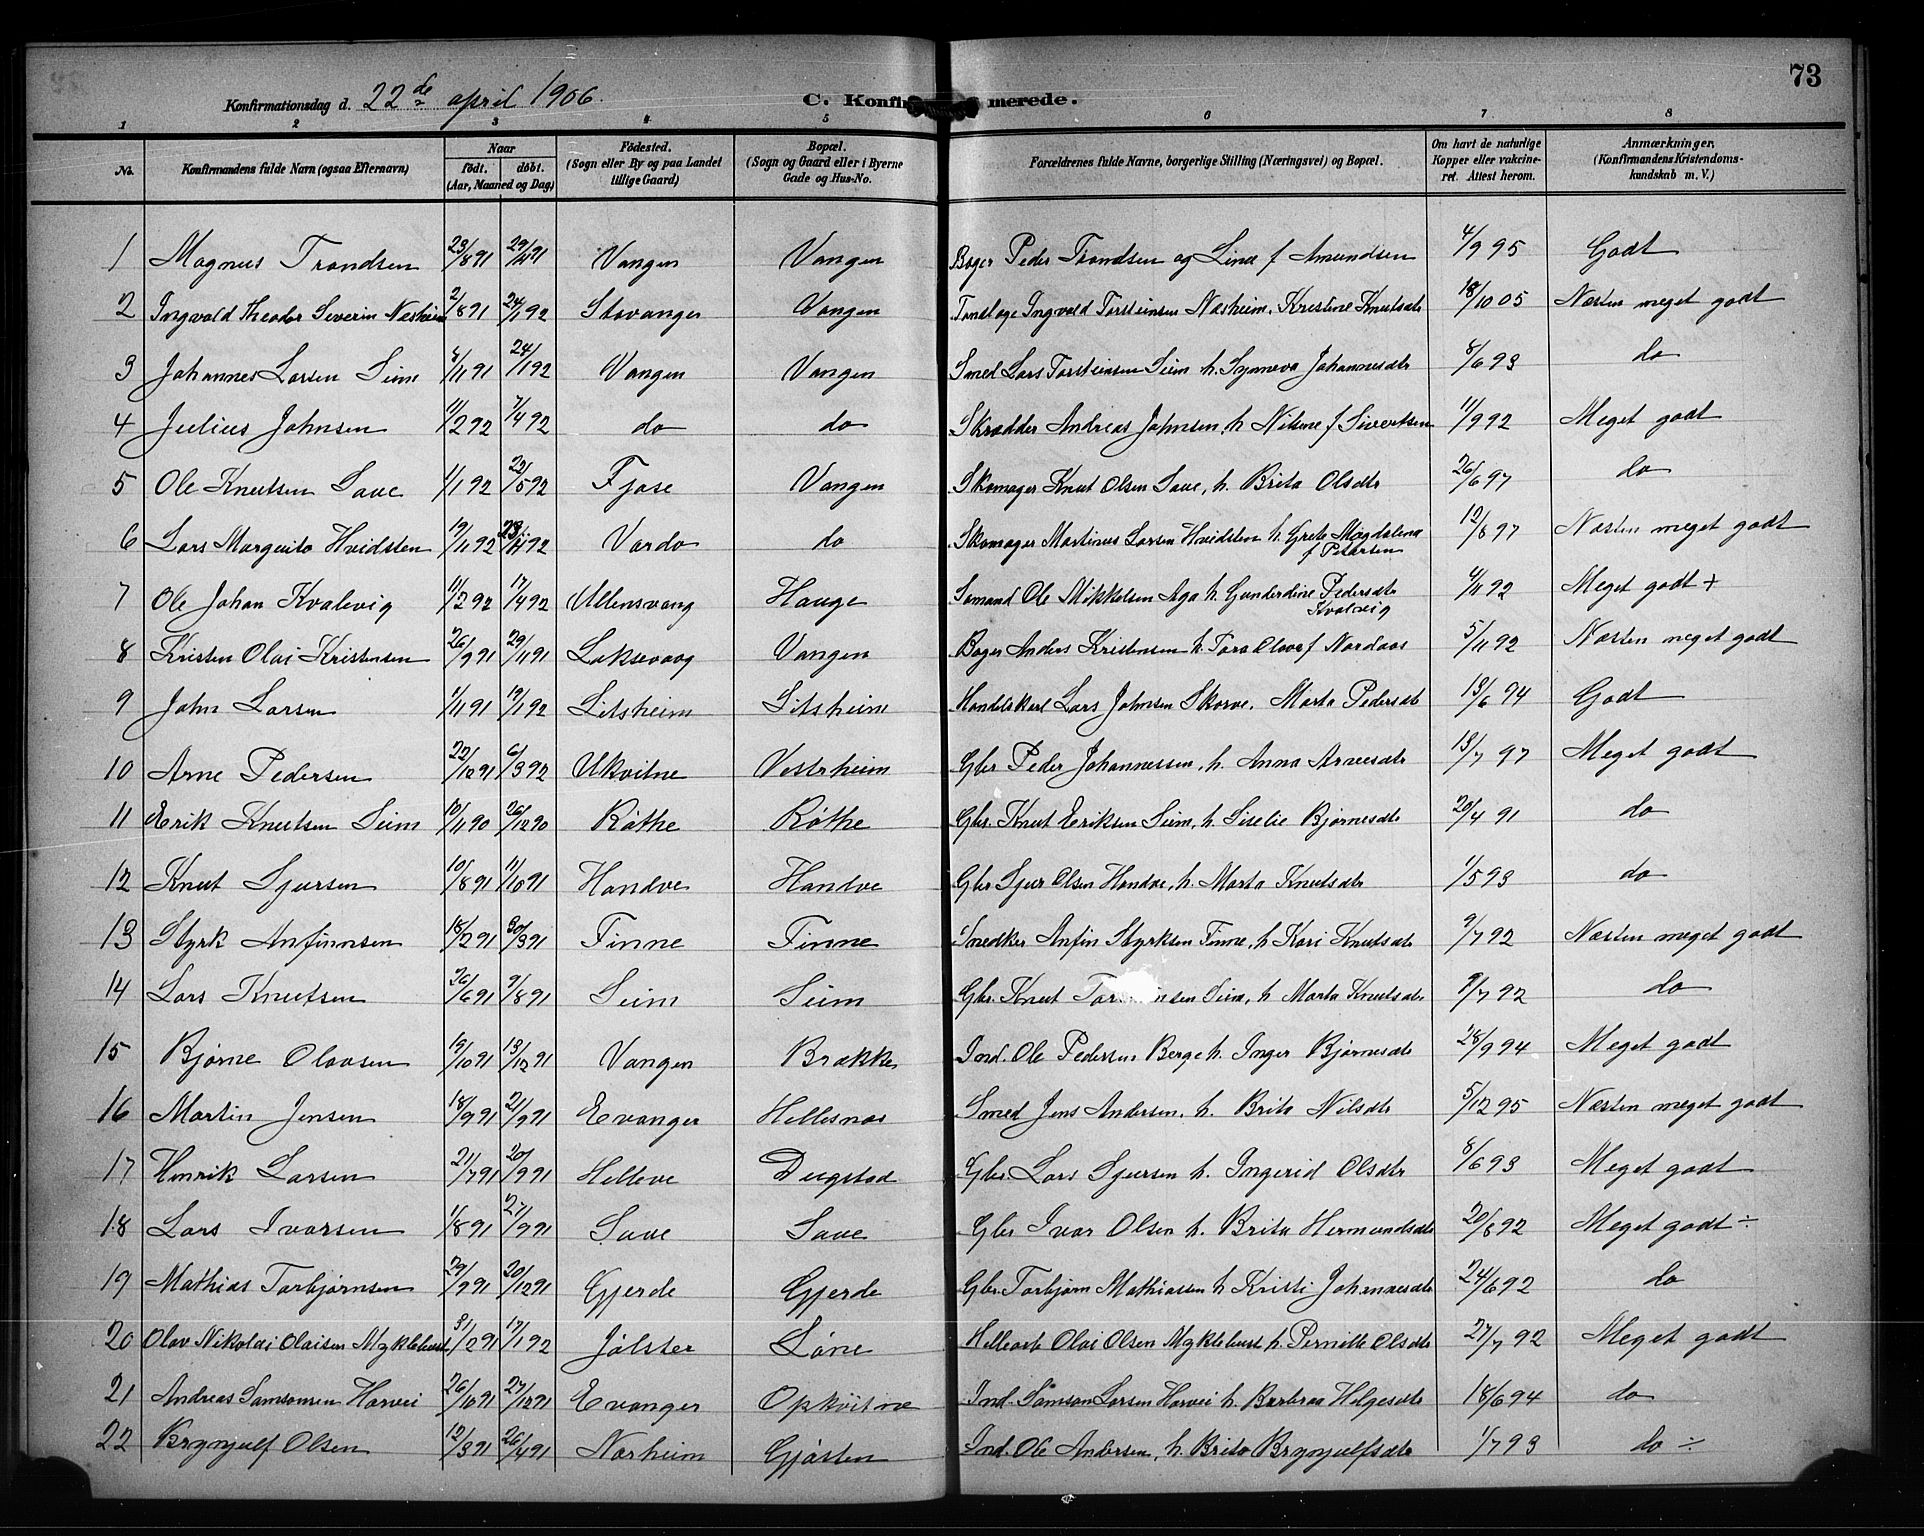 73
Konfirmationsdag d. 22de april 1906. C. Konfirmerede.
1 2 3 4 5 6 7 8
No. Konfirmandens fulde Navn (ogsaa Efternavn) Naar født. døbt. (Aar, Maaned og Dag) Fødested. (Sogn eller By og paa Landet tillige Gaard) Bopæl. (Sogn og Gaard eller i Byerne Gade og Hus-No. Forældrenes fulde Navne, borgerlige Stilling (Næringsvei) og Bopæl. Om havt de naturlige Kopper eller vakcineret. Attest herom. Anmærkninger, (Konfirmandens Kristendomskundskab m. V.)
1 Magnus Trondsen 23/8 91 29/11 91 Vangen Vangen Bager Peder Trondsen og Lina f Amundsen 4/9 95 Godt
2 Ingvald Theodor Severin Næsheim 2/8 91 24/1 92 Stavanger Vangen Tandlæge Ingvald Torsteinsen Næsheim, Kristine Knutsdtr 18/10 05 Næsten meget godt
3 Johannes Larsen Seim 8/11 91 24/1 92 Vangen Vangen Smed Lars Torsteinsen Seim h. Synneva Johannesdtr 8/6 93 do
4 Julius Johnsen 11/2 92 7/4 92 do do Skrædder Andreas Johnsen, h Nilsine f Sivertsen 11/9 92 Meget godt
5 Ole Knutsen Save 1/1 92 22/5 92 Fjose Vangen Skomager Knut Olsen Save, h. Brita Olsdtr 26/6 97 do
6 Lars Margvito Hvidsten 19/11 92 Vardø do Skomager Martinus Larsen Hvidsten h. Grete Magdalena f Petersen 12/8 97 Næsten meget godt
7 Ole Johan Kvalevig 11/2 92 17/4 92 Ullensvang Hauge Sømand Ole Mikkelsen Aga h. Gunderdine Pedersdtr Kvalevig 4/11 92 Meget godt +
8 Kristen Olai Kristensen 26/9 91 29/11 91 Laksevaag Vangen Bager Anders Kristensen h. Tora Olava f Nordaas 5/11 92 Næsten meget godt
9 John Larsen 1/11 91 19/1 92 Litsheim Litsheim Handelskarl Lars Johnsen Skorve, Marta Pedersdtr 13/6 94 Godt
10 Arne Pedersen 22/12 91 6/3 92 Ukvitne Vesterheim Gbr Peder Johannessen, h. Anna Arnesdtr 13/7 97 Meget godt
11 Erik Knutsen Seim 10/11 90 26/12 90 Røthe Røthe Gbr. Knut Eriksen Seim, h. Siselie Bjørnesdtr 20/4 91 do
12 Knut Sjursen 10/8 91 11/10 91 Handve Handve Gbr Sjur Olsen Handve, h. Marta Knutsdtr 1/5 93 do
13 Styrk Anfinnsen 18/2 91 30/3 91 Finne Finne Snedker Anfin Styrksen Finne, h Kari Knutsdtr 9/7 92 Næsten meget godt
14 Lars Knutsen 26/6 91 9/8 91 Seim Seim Gbr. Knut Seim, h Marta Knutsdtr 9/7 92 do
15 Bjørne Olavsen 19/10 91 13/12 91 Vangen Brække Ind. Ole Pedersen Berge h. Inger Bjørnesdtr 28/9 94 Meget godt
16 Martin Jensen 18/9 91 21/9 91 Evanger Hellesnæs Smed Jens Andersen, h. Brita Nilsdtr 5/12 95 Næsten meget godt
17 Henrik Larsen 21/7 91 20/9 91 Helleve Dugstad Gbr. Lars Sjursen h. Ingerid Olsdtr 8/6 93 Meget godt
18 Lars Ivarsen 1/8 91 27/9 91 Save Save Gbr Ivar Olsen h. Brita Hermundsdtr 20/8 92 Meget godt ÷
19 Mathias Torbjørnsen 29/9 91 20/12 91 Gjerde Gjerde Gbr. Torbjørn Mathiassen h. Kristi Johannesdtr 24/6 92 do
20 Olav Nikolai Olaisen Myklebust 31/12 91 17/1 92 Jølster Løne Olai Olsen Myklebust h. Pernille Olsdtr 27/7 92 Meget godt
21 Andreas Samsonsen Horvei 26/10 91 27/12 91 Evanger Opkvitne Ind. Samson Larsen Horvei h. Barbraa Helgesdtr 18/6 94 do
22 Brynjulf Olsen 12/3 91 26/4 91 Nærheim Gjøsten Ind. Ole Andersen, h. Brita Brynjulfsdtr 1/7 93 do ÷